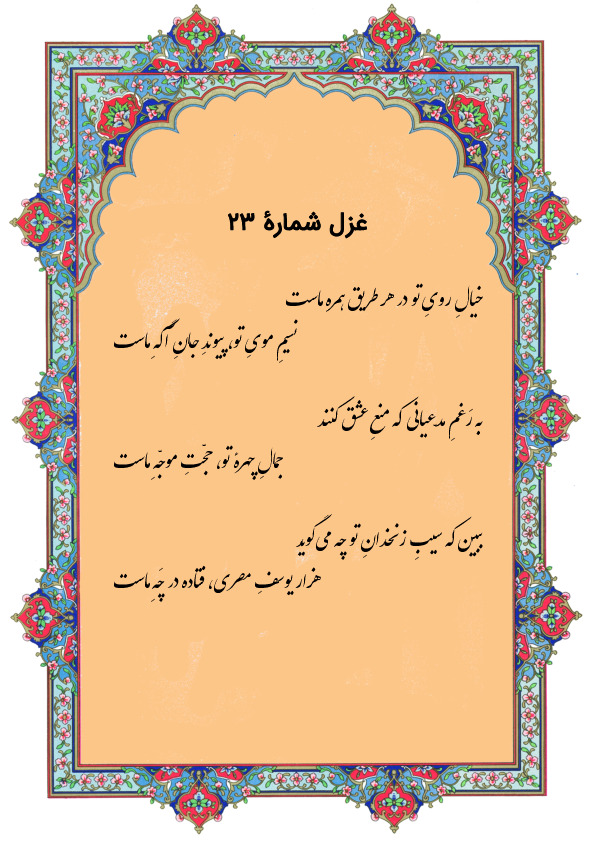 غزل شمارهٔ ۲۳
خیالِ رویِ تو در هر طریق همره ماست
نسیمِ مویِ تو، پیوندِ جانِ آگهِ ماست
به رَغمِ مدعیانی که منعِ عشق کنند
جمالِ چهرهٔ تو، حجّتِ موجّهِ ماست
ببین که سیبِ زنخدانِ تو چه می‌گوید
هزار یوسفِ مصری، فتاده در چَهِ ماست